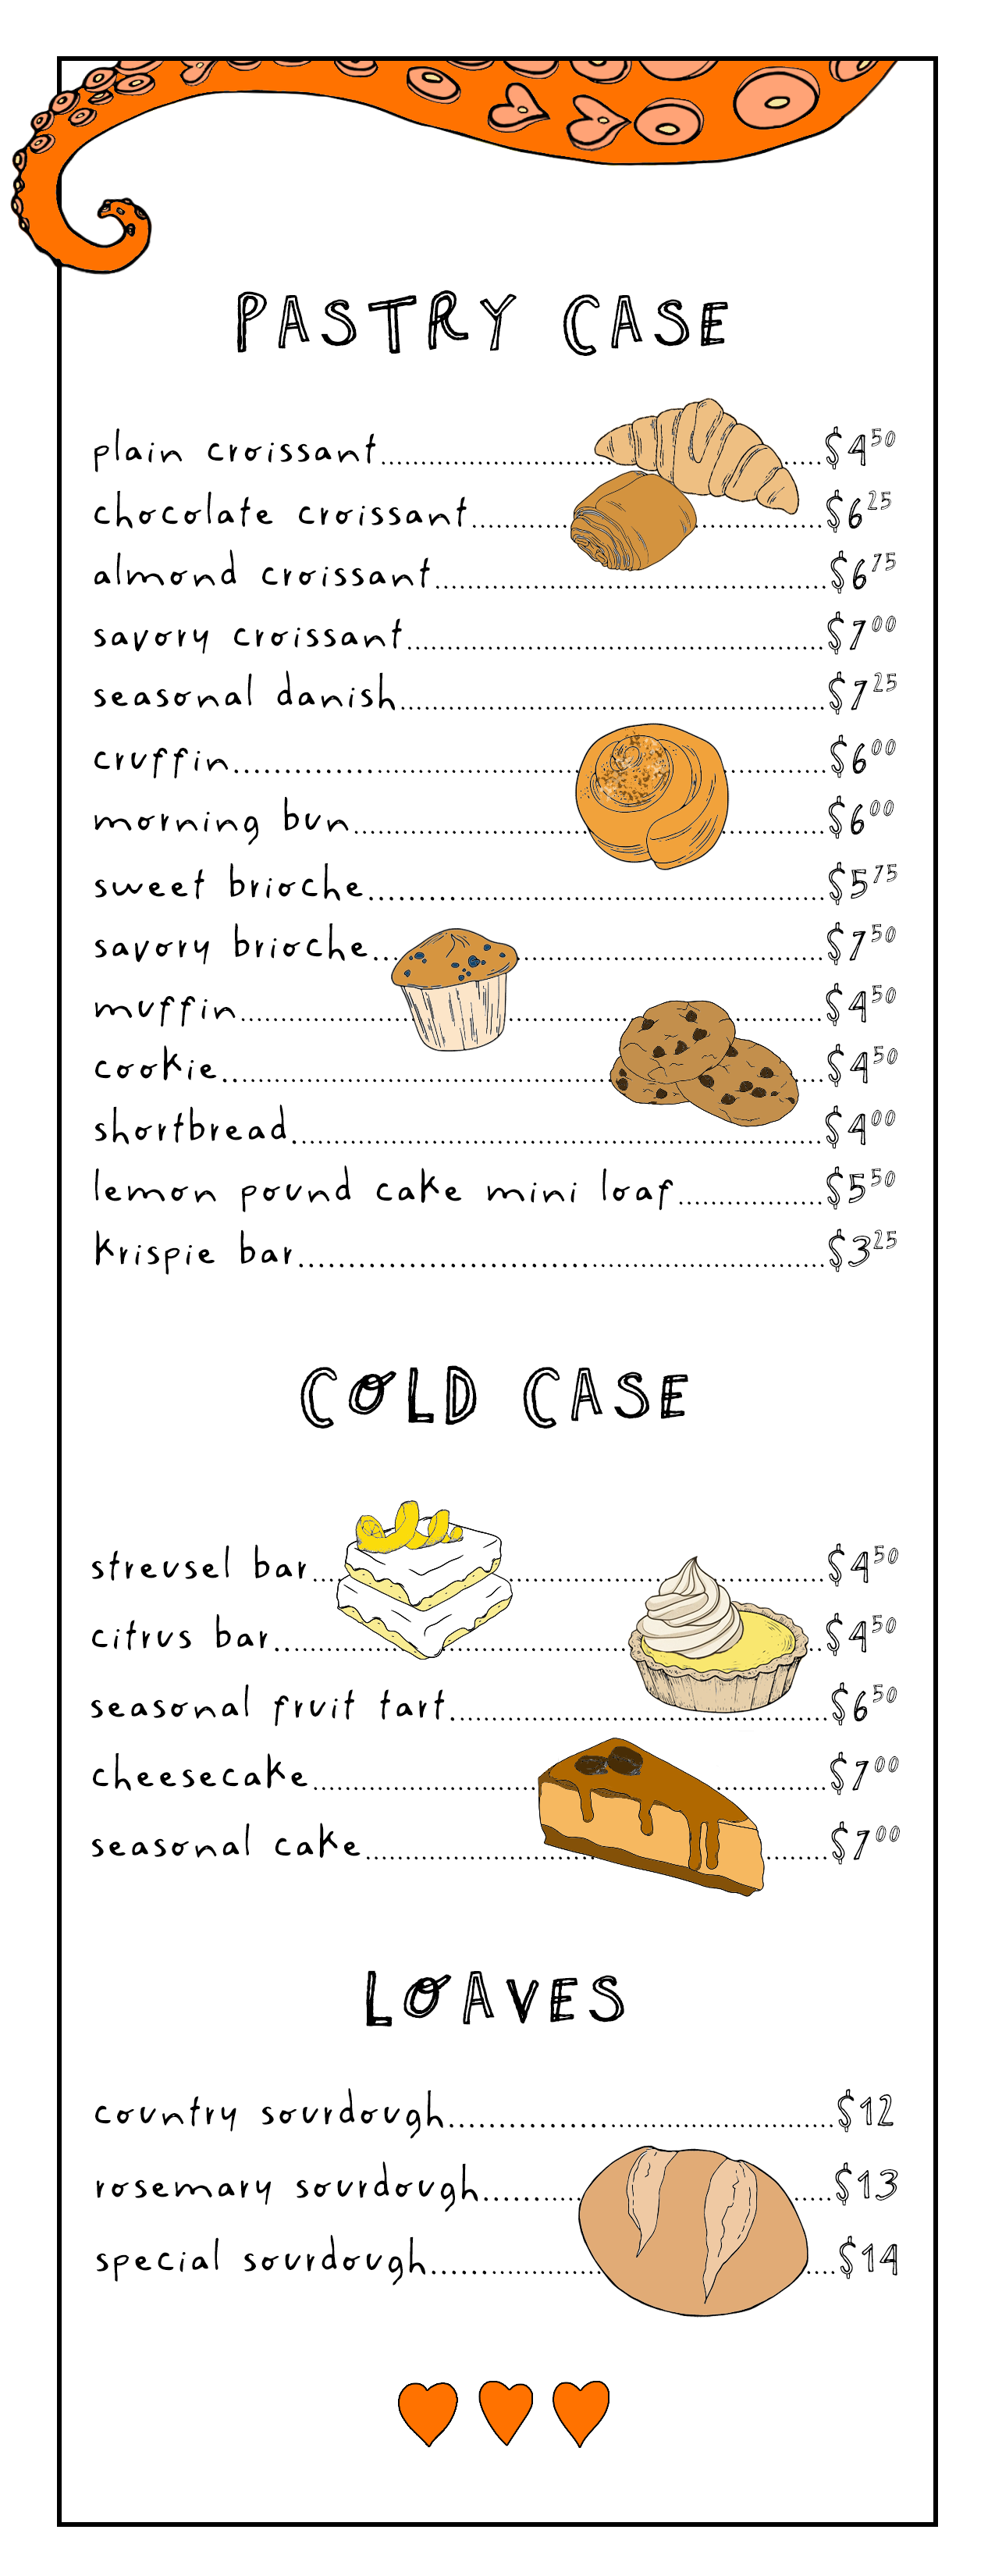 PASTRY CASE
plain croissant $4 50
chocolate croissant $6 25
almond croissant $6 75
savory croissant $7 00
seasonal danish $7 25
cruffin $6 00
morning bun $6 00
sweet brioche $5 75
savory brioche $7 50
muffin $4 50
cookie $4 50
shortbread $4 00
lemon pound cake mini loaf $5 50
krispie bar $3 25
COLD CASE
streusel bar $4 50
citrus bar $4 50
seasonal fruit tart $6 50
cheesecake $7 00
seasonal cake $7 00
LOAVES
country sourdough $12
rosemary sourdough $13
special sourdough $14